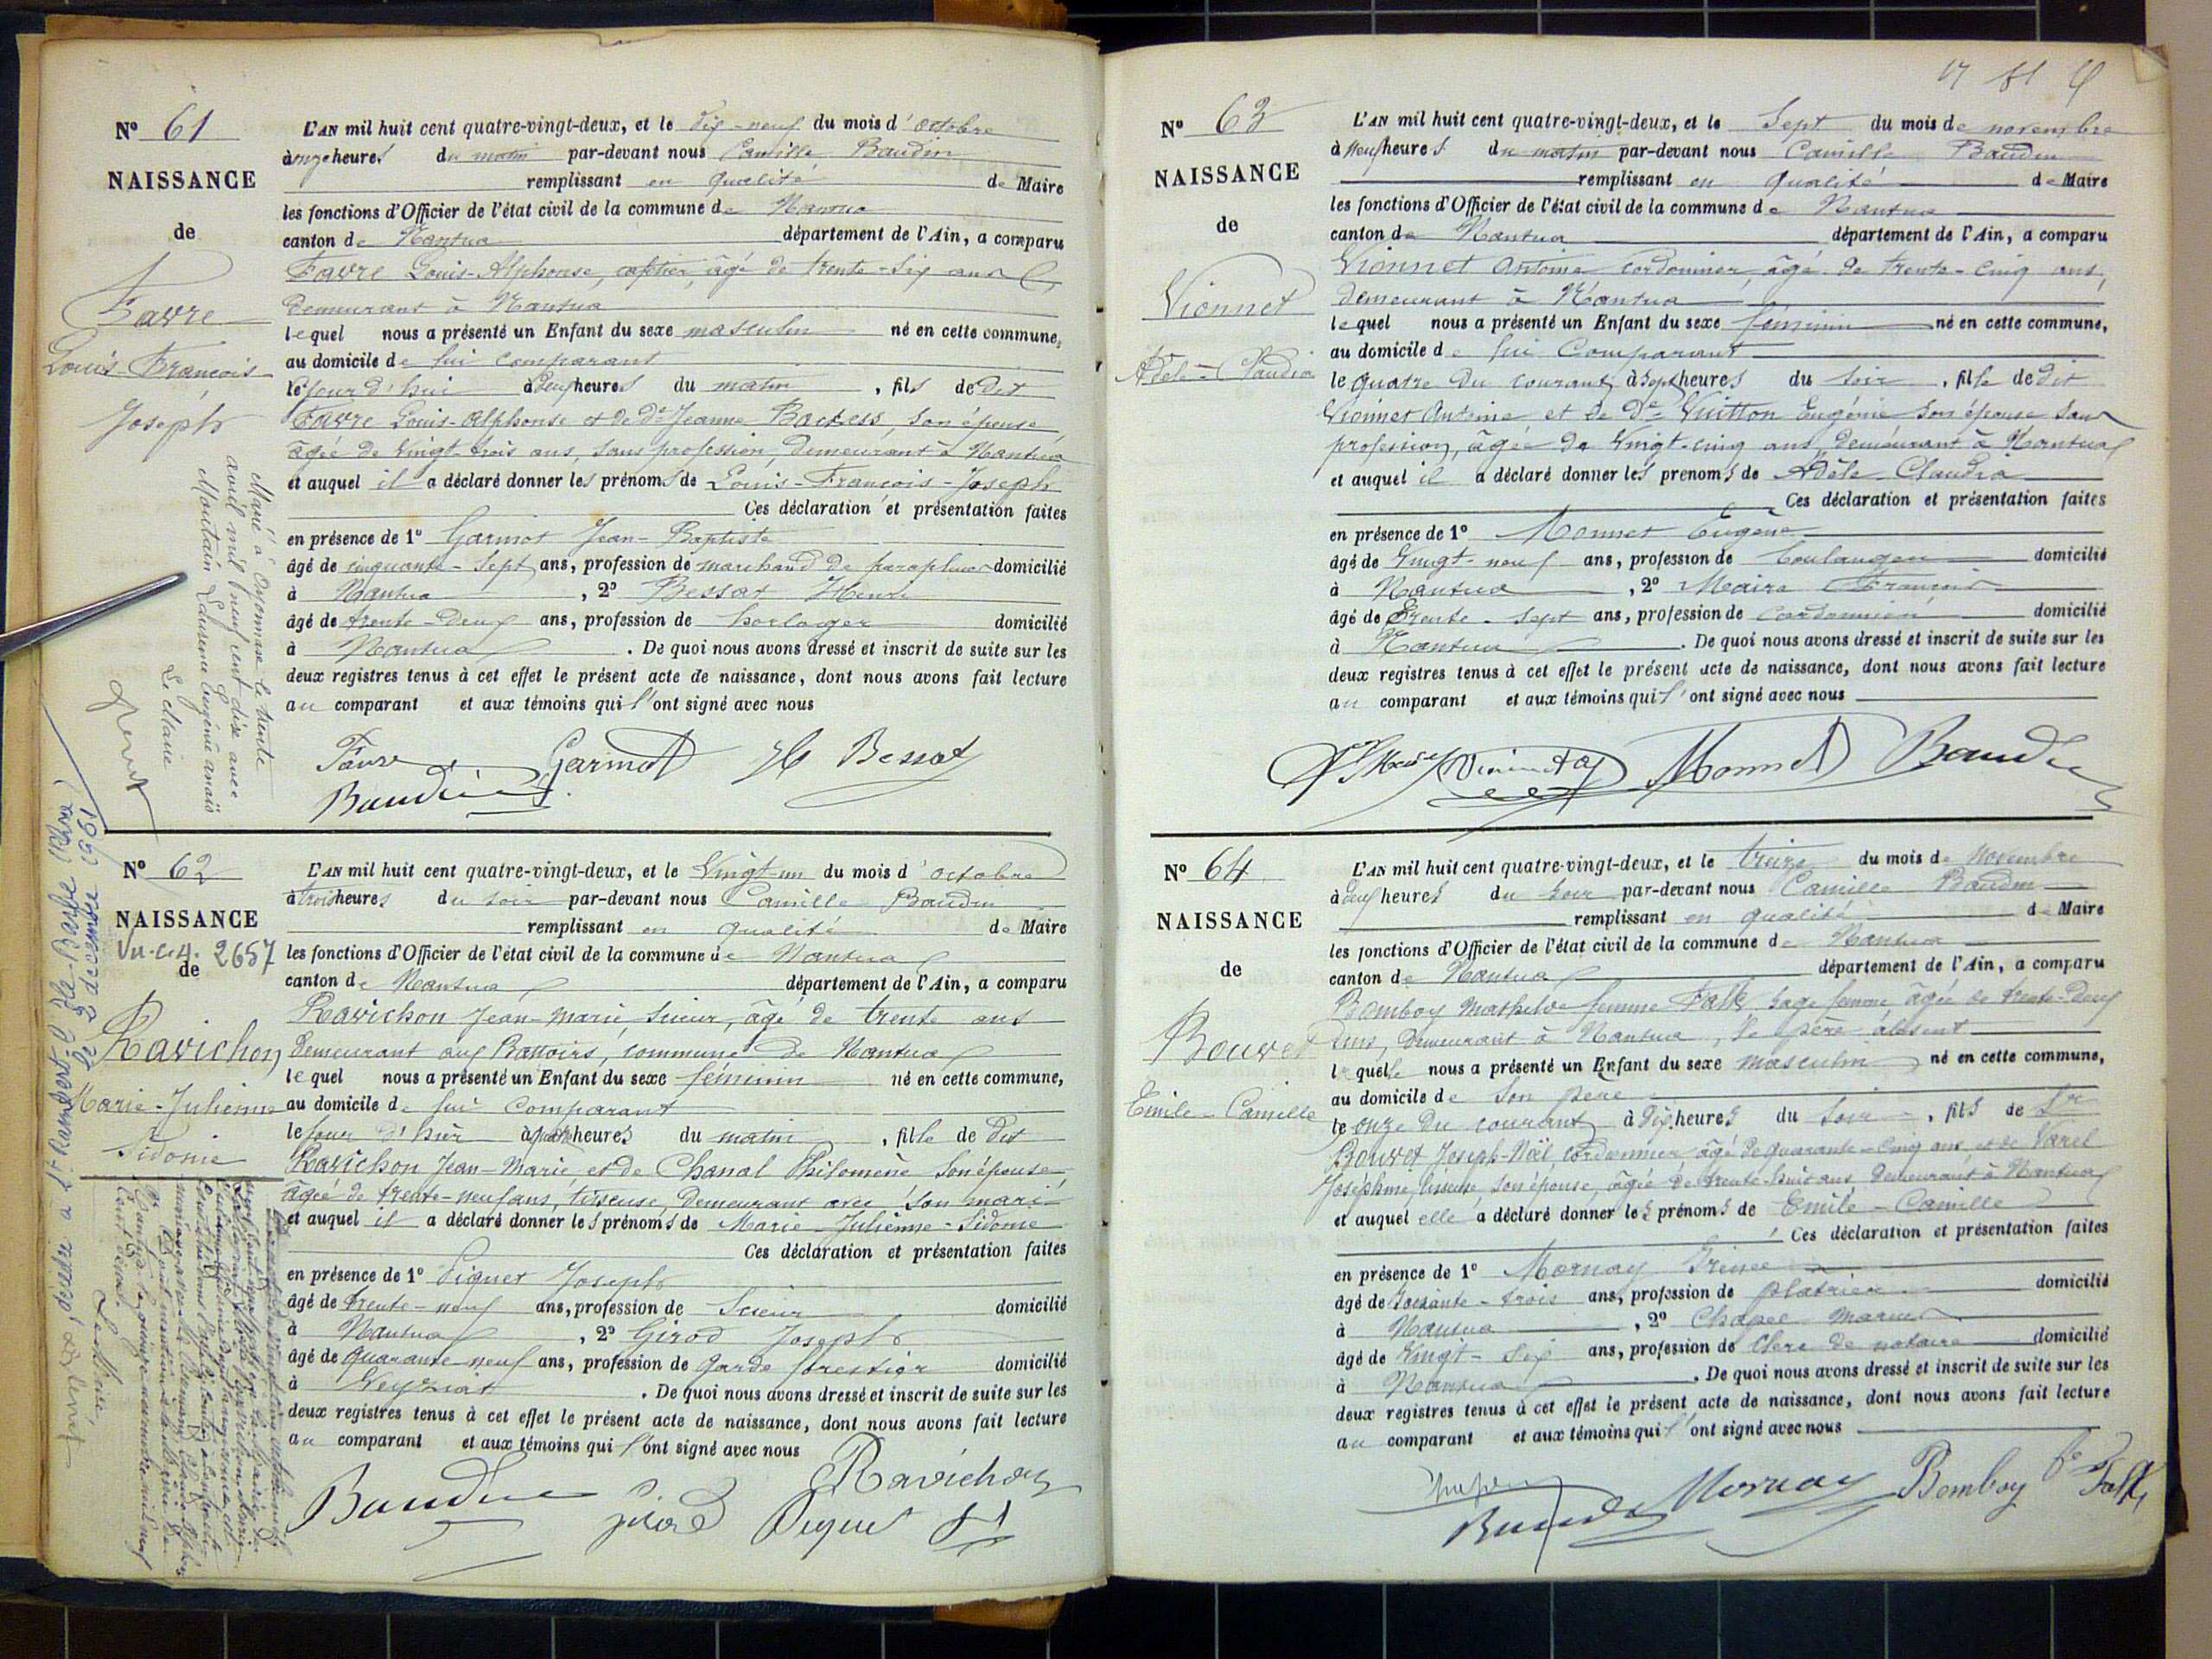 Nº 61
NAISSANCE
de
Favre
Louis François
Joseph
L'AN mil huit cent quatre-vingt-deux, et le dix-neuf du mois d'octobre
à onze heures du matin par-devant nous Camille Baudin
remplissant en qualité de Maire
les fonctions d'Officier de l'état civil de la commune de Nantua
canton de Nantua département de l'Ain, a comparu
Favre Louis-Alphonse, cafetier, âgé de trente-six ans
demeurant à Nantua
lequel nous a présenté un Enfant du sexe masculin né en cette commune,
au domicile de lui comparant
le jour d'hui à deux heures du matin, fils de dit
Favre Louis-Alphonse et de De Jeanne Backess, son épouse,
âgée de vingt-trois ans, sans profession, demeurant à Nantua
et auquel il a déclaré donner les prénoms de Louis-François-Joseph
Ces déclaration et présentation faites
en présence de 1º Garmot Jean-Baptiste
âgé de cinquante-sept ans, profession de marchand de parapluies domicilié
à Nantua, 2º Bessat Henri
âgé de trente-deux ans, profession de horloger domicilié
à Nantua. De quoi nous avons dressé et inscrit de suite sur les
deux registres tenus à cet effet le présent acte de naissance, dont nous avons fait lecture
au comparant et aux témoins qui l'ont signé avec nous
Favre Garmot H Bessat
Baudin
Marié à Oyonnax le trente
avril mil neuf cent dix avec
Moutain Laurence Eugénie Anaïs
Le Maire
Nº 62
NAISSANCE
de
2657
Ravichon
Marie-Julienne
Sidonie
L'AN mil huit cent quatre-vingt-deux, et le vingt-un du mois d'octobre
à trois heures du soir par-devant nous Camille Baudin
remplissant en qualité de Maire
les fonctions d'Officier de l'état civil de la commune de Nantua
canton de Nantua département de l'Ain, a comparu
Ravichon Jean-Marie, scieur, âgé de trente ans
demeurant aux Battoirs, commune de Nantua
lequel nous a présenté un Enfant du sexe féminin né en cette commune,
au domicile de lui comparant
le jour d'hier à quatre heures du matin, fille de dit
Ravichon Jean-Marie et de Chanal Philomène son épouse,
âgée de trente-neuf ans, tisseuse, demeurant avec son mari
et auquel il a déclaré donner les prénoms de Marie-Julienne-Sidonie
Ces déclaration et présentation faites
en présence de 1º Piquet Joseph
âgé de trente-neuf ans, profession de Scieur domicilié
à Nantua, 2º Girod Joseph
âgé de quarante-neuf ans, profession de garde forestier domicilié
à Veyziat. De quoi nous avons dressé et inscrit de suite sur les
deux registres tenus à cet effet le présent acte de naissance, dont nous avons fait lecture
au comparant et aux témoins qui l'ont signé avec nous
Ravichon
Baudin Girod Piquet
décédée à St Rambert-l'Ile-Barbe (Rhône)
le 2 décembre 1961
Le Maire,
Nº 63
NAISSANCE
de
Vionnet
Adèle-Claudia
L'AN mil huit cent quatre-vingt-deux, et le sept du mois de novembre
à neuf heures du matin par-devant nous Camille Baudin
remplissant en qualité de Maire
les fonctions d'Officier de l'état civil de la commune de Nantua
canton de Nantua département de l'Ain, a comparu
Vionnet Antoine cordonnier, âgé de trente-cinq ans,
demeurant à Nantua
lequel nous a présenté un Enfant du sexe féminin né en cette commune,
au domicile de lui comparant
le quatre du courant à sept heures du soir, fille de dit
Vionnet Antoine et de De Vuitton Eugénie son épouse sans
profession, âgée de vingt-cinq ans, demeurant à Nantua
et auquel il a déclaré donner les prénoms de Adèle-Claudia
Ces déclaration et présentation faites
en présence de 1º Monnet Eugène
âgé de vingt-neuf ans, profession de boulanger domicilié
à Nantua, 2º Maire François
âgé de trente-sept ans, profession de cordonnier domicilié
à Nantua. De quoi nous avons dressé et inscrit de suite sur les
deux registres tenus à cet effet le présent acte de naissance, dont nous avons fait lecture
au comparant et aux témoins qui l'ont signé avec nous
Monnet Baudin
Nº 64
NAISSANCE
de
Bouvet
Emile-Camille
L'AN mil huit cent quatre-vingt-deux, et le treize du mois de Novembre
à deux heures du soir par-devant nous Camille Baudin
remplissant en qualité de Maire
les fonctions d'Officier de l'état civil de la commune de Nantua
canton de Nantua département de l'Ain, a comparu
Bomboy Mathilde femme Falk, sage femme âgée de trente-deux
ans, demeurant à Nantua, le père absent
lequelle nous a présenté un Enfant du sexe masculin né en cette commune,
au domicile de son père
le onze du courant, à dix heures du soir, fils de Sr
Bouvet Joseph-Noël, cordonnier âgé de quarante-cinq ans et de Varel
Joséphine, tisseuse, son épouse, âgée de trente-huit ans demeurant à Nantua
et auquel elle a déclaré donner les prénoms de Emile-Camille
Ces déclaration et présentation faites
en présence de 1º Mornay Irénée
âgé de soixante-trois ans, profession de platrier domicilié
à Nantua, 2º Chapel Marius
âgé de vingt-six ans, profession de Clerc de notaire domicilié
à Nantua. De quoi nous avons dressé et inscrit de suite sur les
deux registres tenus à cet effet le présent acte de naissance, dont nous avons fait lecture
au comparant et aux témoins qui l'ont signé avec nous
Baudin Mornay Bomboy fe Falk